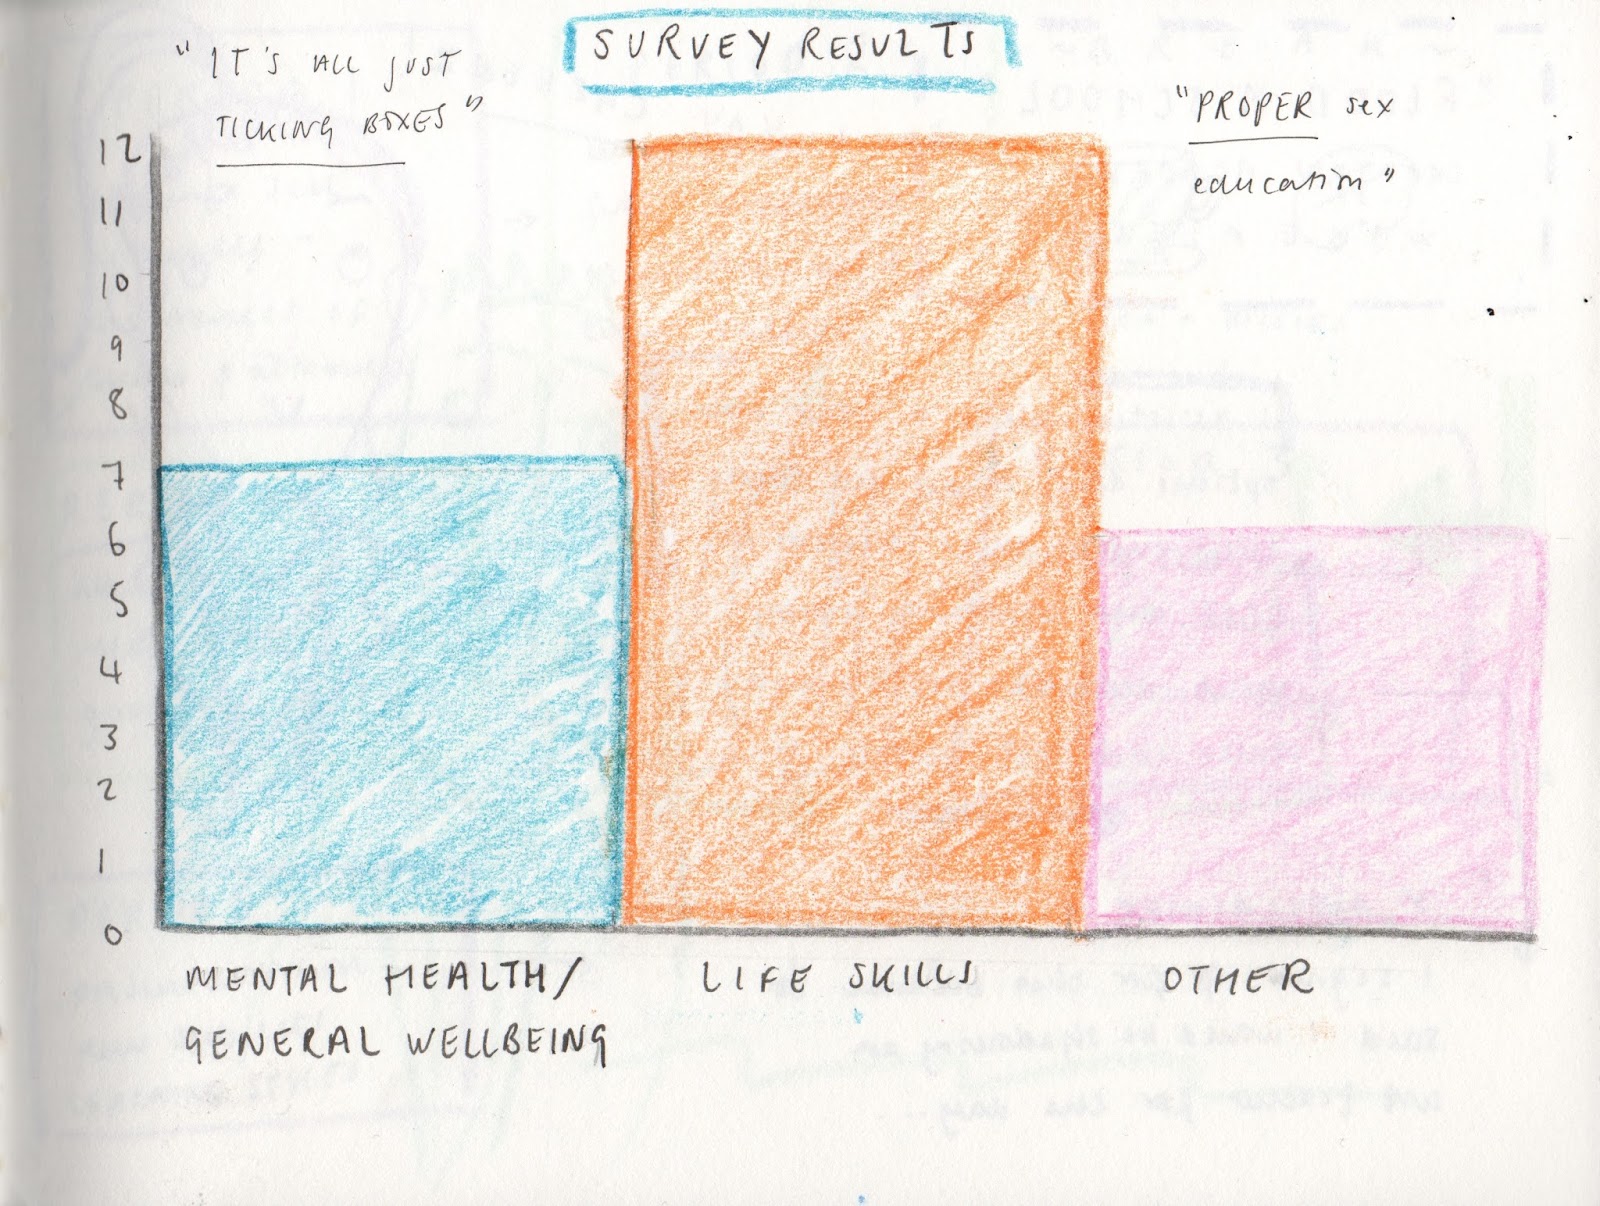 SURVEY RESULTS
"IT'S ALL JUST
TICKING BOXES"
"PROPER sex
education"
12
11
10
9
8
7
6
5
4
3
2
1
0
MENTAL HEALTH/
GENERAL WELLBEING
LIFE SKILLS
OTHER